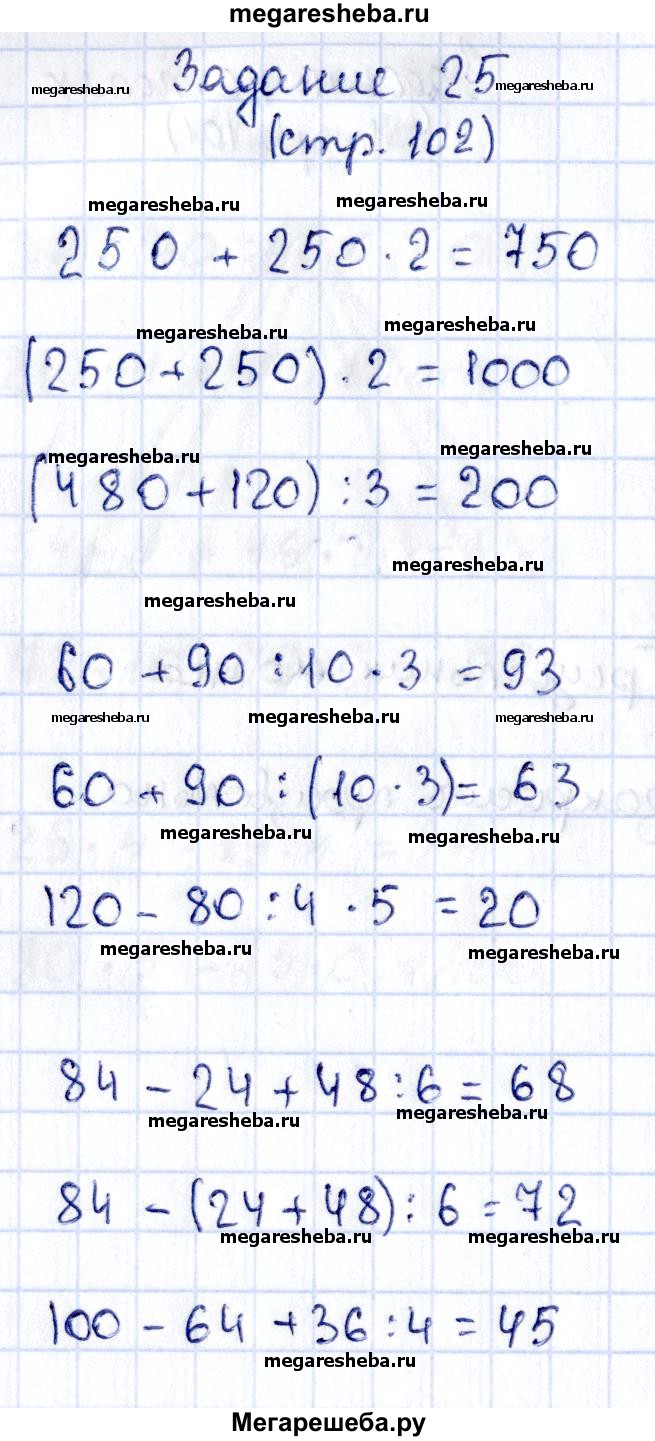 megaresheba.ru
Задание 25
megaresheba.ru megaresheba.ru
(стр. 102)
megaresheba.ru megaresheba.ru
250 + 250 · 2 = 750
megaresheba.ru megaresheba.ru
(250 + 250) · 2 = 1000
megaresheba.ru megaresheba.ru
(480 + 120) : 3 = 200
megaresheba.ru
megaresheba.ru
60 + 90 : 10 · 3 = 93
megaresheba.ru megaresheba.ru megaresheba.ru
60 + 90 : (10 · 3) = 63
megaresheba.ru megaresheba.ru
120 - 80 : 4 · 5 = 20
megaresheba.ru megaresheba.ru
84 - 24 + 48 : 6 = 68
megaresheba.ru megaresheba.ru
84 - (24 + 48) : 6 = 72
megaresheba.ru megaresheba.ru
100 - 64 + 36 : 4 = 45
megaresheba.ru
Мегарешеба.ру